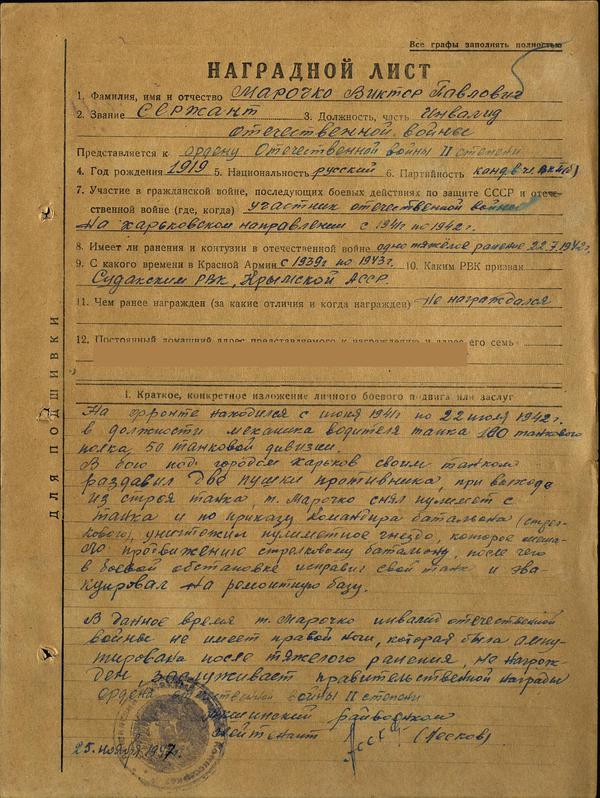 Все графы заполнять полностью
НАГРАДНОЙ ЛИСТ
1. Фамилия, имя и отчество Марочко Виктор Павлович
2. Звание Сержант 3. Должность, часть Инвалид
отечественной войны
Представляется к ордену Отечественной войны II степени
4. Год рождения 1919 5. Национальность русский 6. Партийность канд. в чл. ВКП(б)
7. Участие в гражданской войне, последующих боевых действиях по защите СССР и отече-
ственной войне (где, когда) участник отечественной войны
На харьковском направлении с 1941г по 1942г.
8. Имеет ли ранения и контузии в отечественной войне одно тяжелое ранение 22.7.1942г.
9. С какого времени в Красной Армии с 1939г по 1943г. 10. Каким РВК призван
Судакским РВК, Крымской АССР.
11. Чем ранее награжден (за какие отличия и когда награжден) Не награждался
12. Постоянный домашний адрес представляемого к награждению и адрес его семьи
ДЛЯ ПОДШИВКИ
I. Краткое, конкретное изложение личного боевого подвига или заслуг
На фронте находился с июня 1941г по 22 июля 1942г.
в должности механика водителя танка 100 танкового
полка, 50 танковой дивизии.
В бою под городом Харьков своим танком
раздавил две пушки противника, при выходе
из строя танка, т. Марочко снял пулимет с
танка и по приказу командира батальона (стрел-
кового), уничтожил пулиметное гнездо, которое меша-
ло продвижению стрелковому батальону, после чего
в боевой обстановке исправил свой танк и эва-
куировал на ремонтную базу.
В данное время т. Марочко инвалид отечественной
войны не имеет правой ноги, которая была ампу-
тирована после тяжелого ранения, не награж-
ден, заслуживает правительственной награды
ордена отечественной войны II степени
райвоенком
лейтенант (Лесков)
25. ноября 1947г.